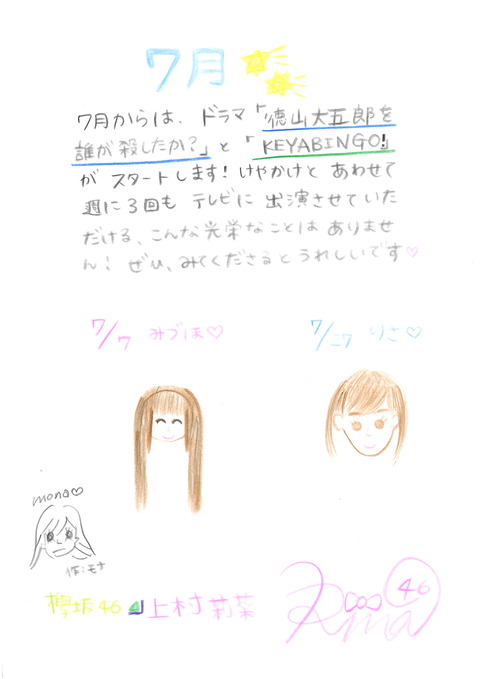 7月
7月からは、ドラマ「徳山大五郎を
誰が殺したか?」と「KEYABINGO!」
がスタートします!けやかけとあわせて
週に3回もテレビに出演させていた
だける、こんな光栄なことはありませ
ん!ぜひ、みてくださるとうれしいです♡
7/7 みづほ♡
7/27 りさ♡
mona♡
作:モナ
欅坂46 上村莉菜
Rina
46